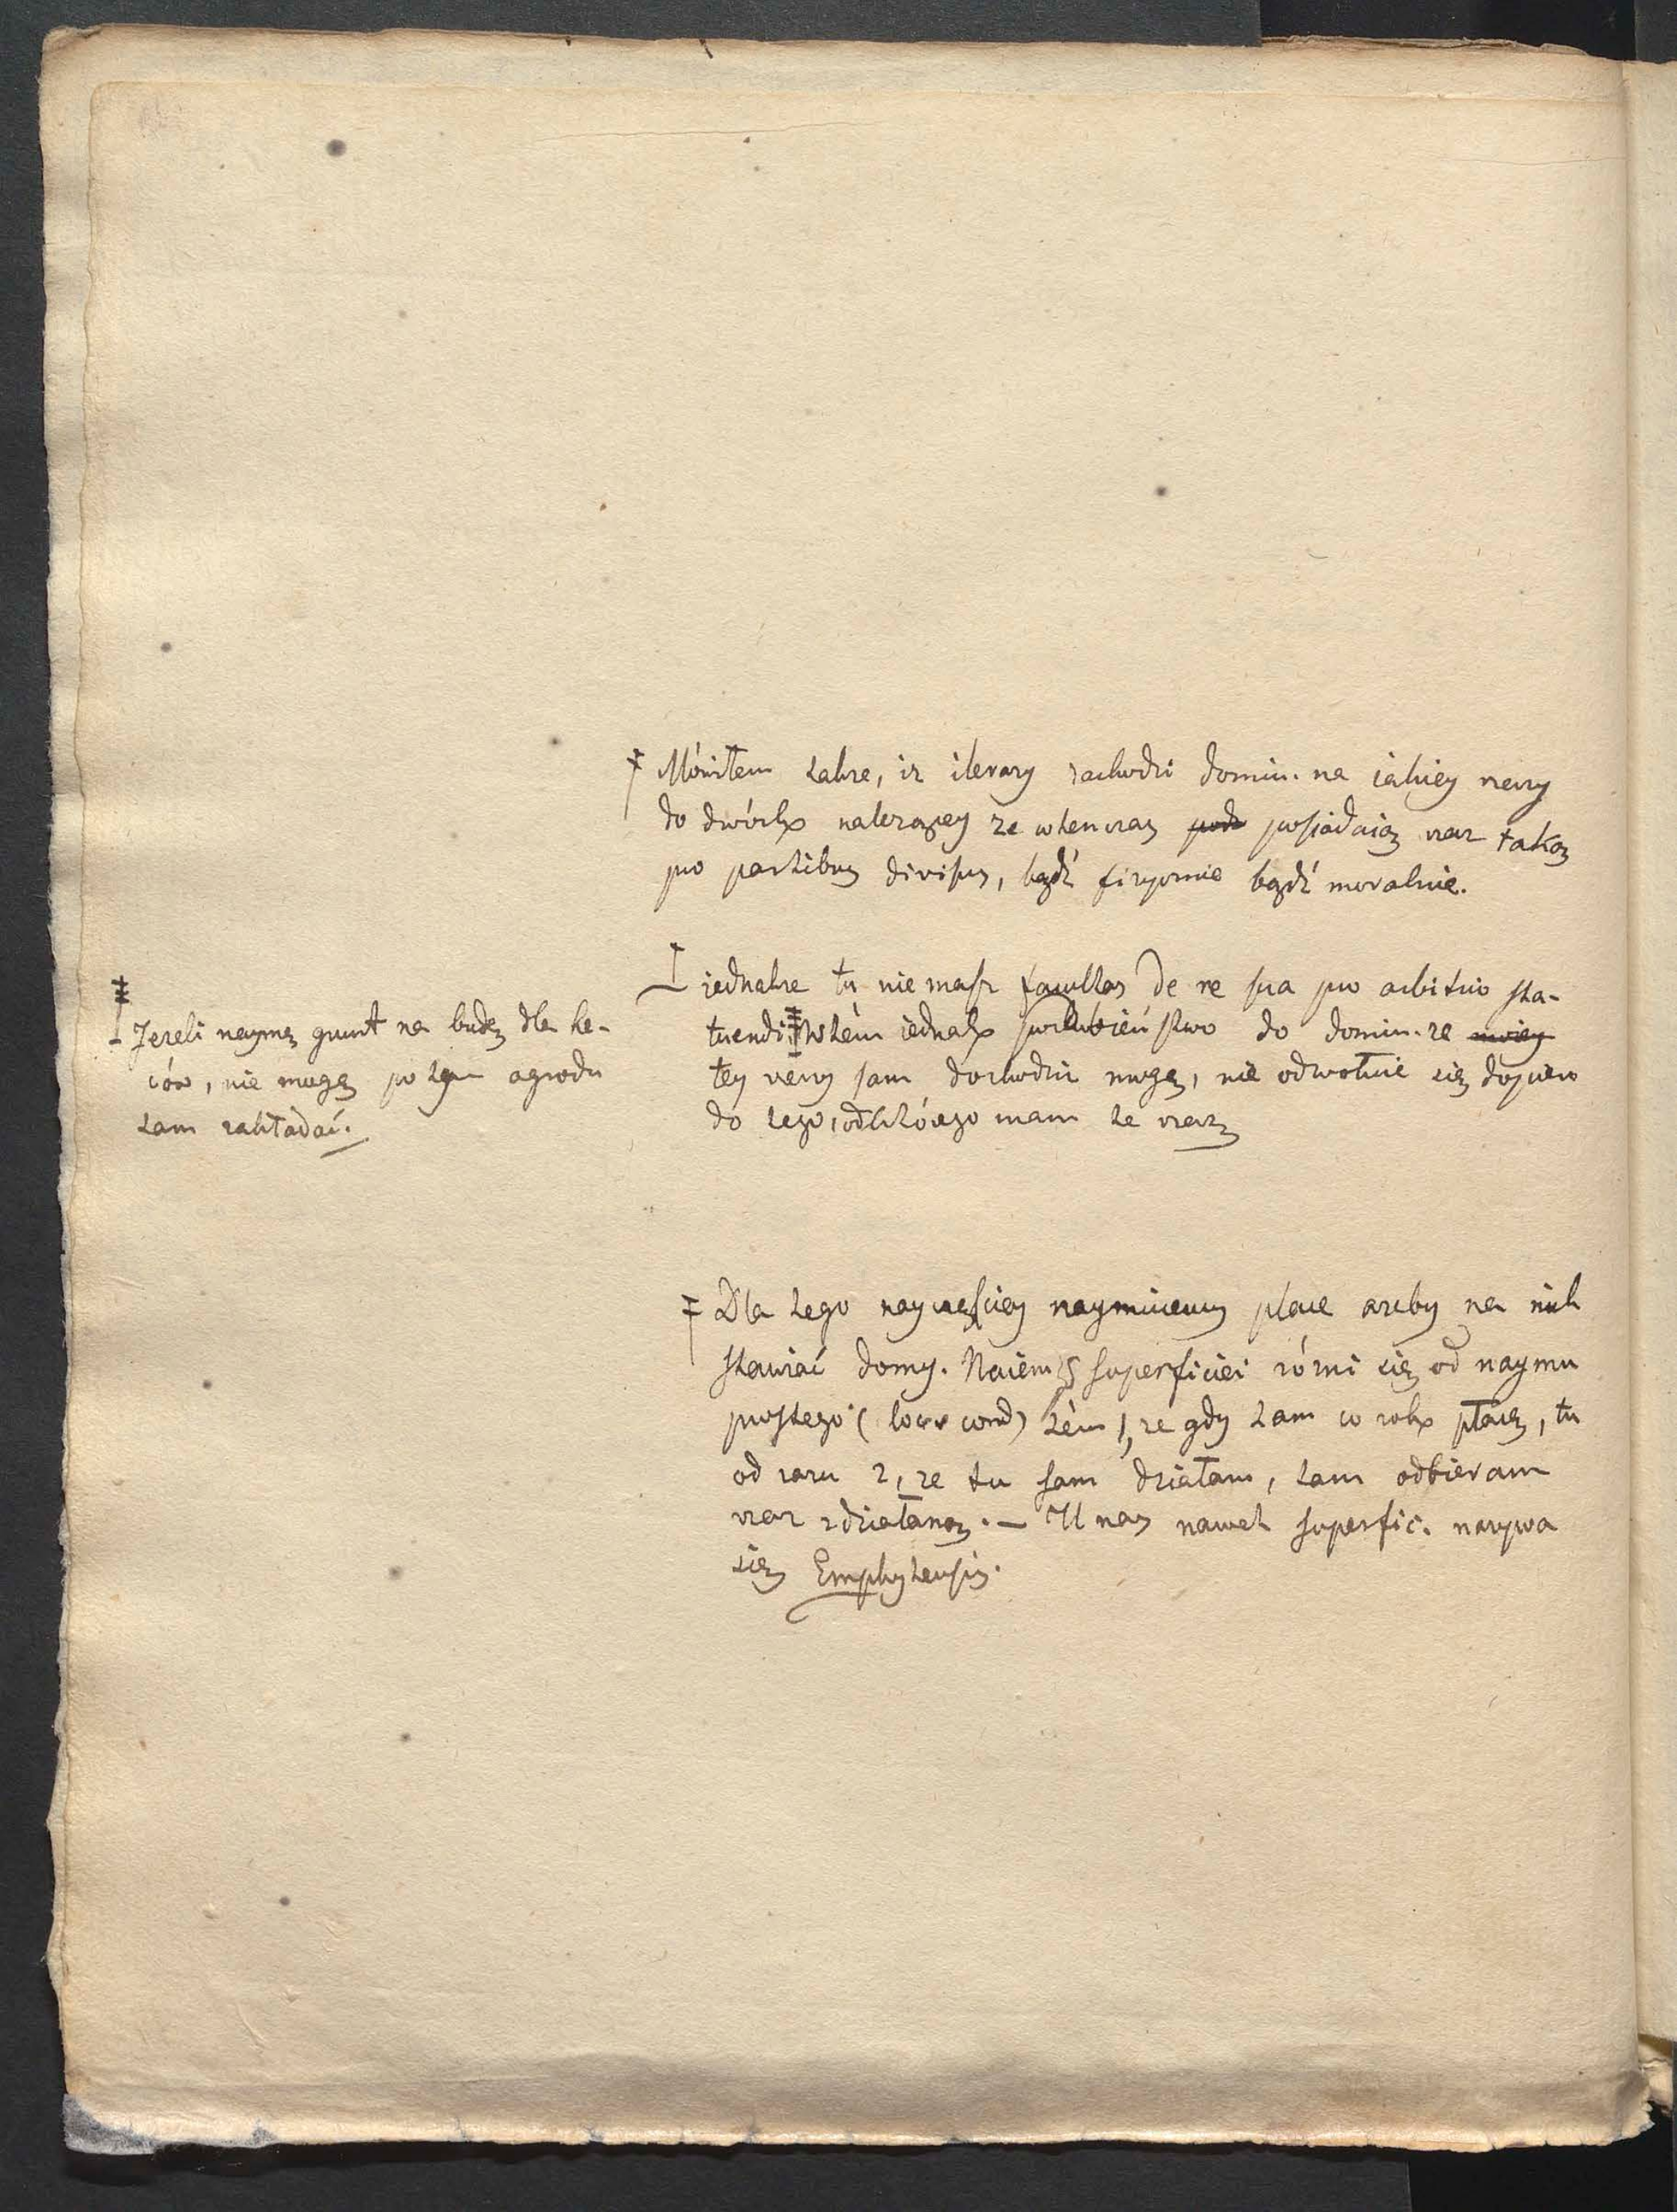 ‡ Mówiłem także, iż ilerazy zachodzi domin. na iakiey rzeczy
do dwóch należącey że wtenczas podz posiadaią rzecz taką
pro partibus divisis, bądź fizycznie bądź moralnie.
iednakże tu nie masz facultas de re sua pro arbitrio sta-
tuendi ‡ w tém iednak podobieństwo do domin. że moiey
tey rzeczy sam dochodzić mogę, nie odwołuię się dopiero
do tego, od którego mam te rzecz
‡ Jeżeli naymę grunt na budę dla ke-
ców, nie mogę potem ogrodu
tam zakładać.
‡ Dla tego nayczęściey naymuiemy place ażeby na nich
stawiać domy. Naiem superficiei różni się od naymu
prostego (loc cond) tém 1, że gdy tam co rok płacę, tu
od razu 2, że tu sam działam, tam odbieram
rzecz zdziałaną. — U nas nawet superfic. nazywa
się Emphyteusis.